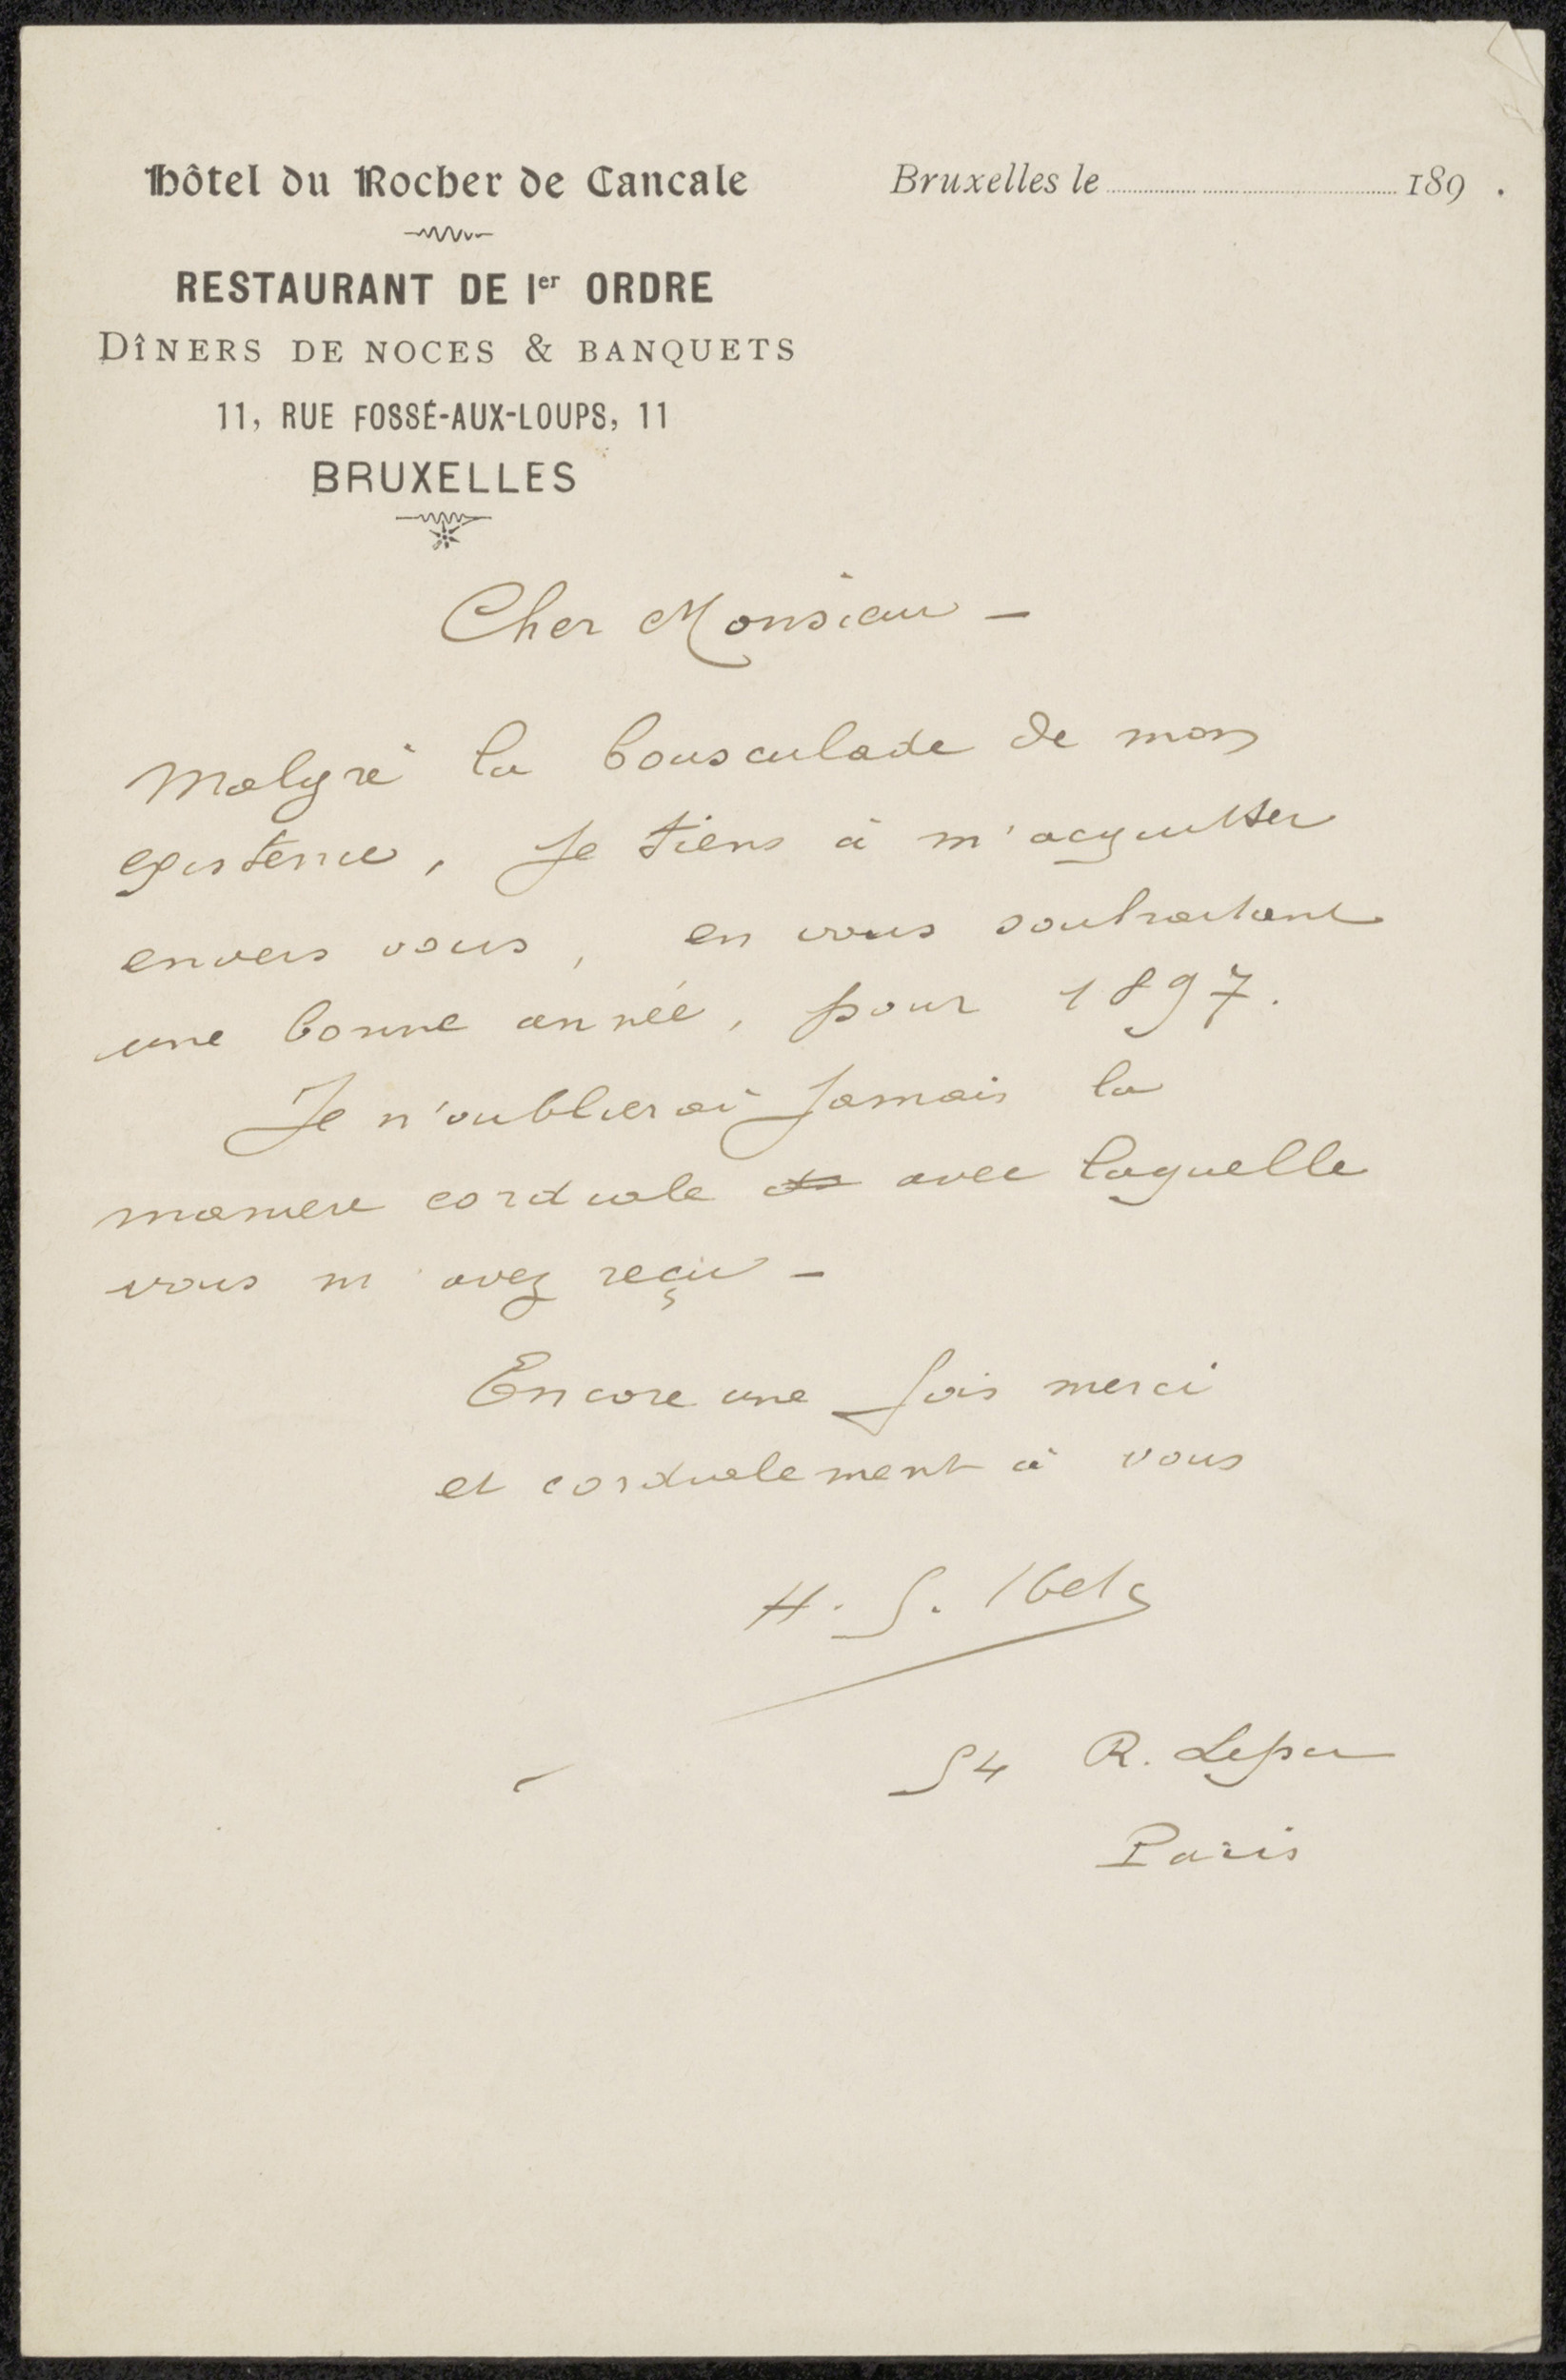 Hôtel du Rocher de Cancale
Bruxelles le 189 .
RESTAURANT DE 1er ORDRE
DÎNERS DE NOCES & BANQUETS
11, RUE FOSSÉ-AUX-LOUPS, 11
BRUXELLES
Cher Monsieur –
Malgré la bousculade de mon
existence, Je tiens à m'acquitter
envers vous, en vous souhaitant
une bonne année, pour 1897.
Je n'oublierai Jamais la
manière cordiale avec laquelle
vous m'avez reçu –
Encore une fois merci
et cordialement à vous
H. G. Ibels
54 R. Lepic
Paris